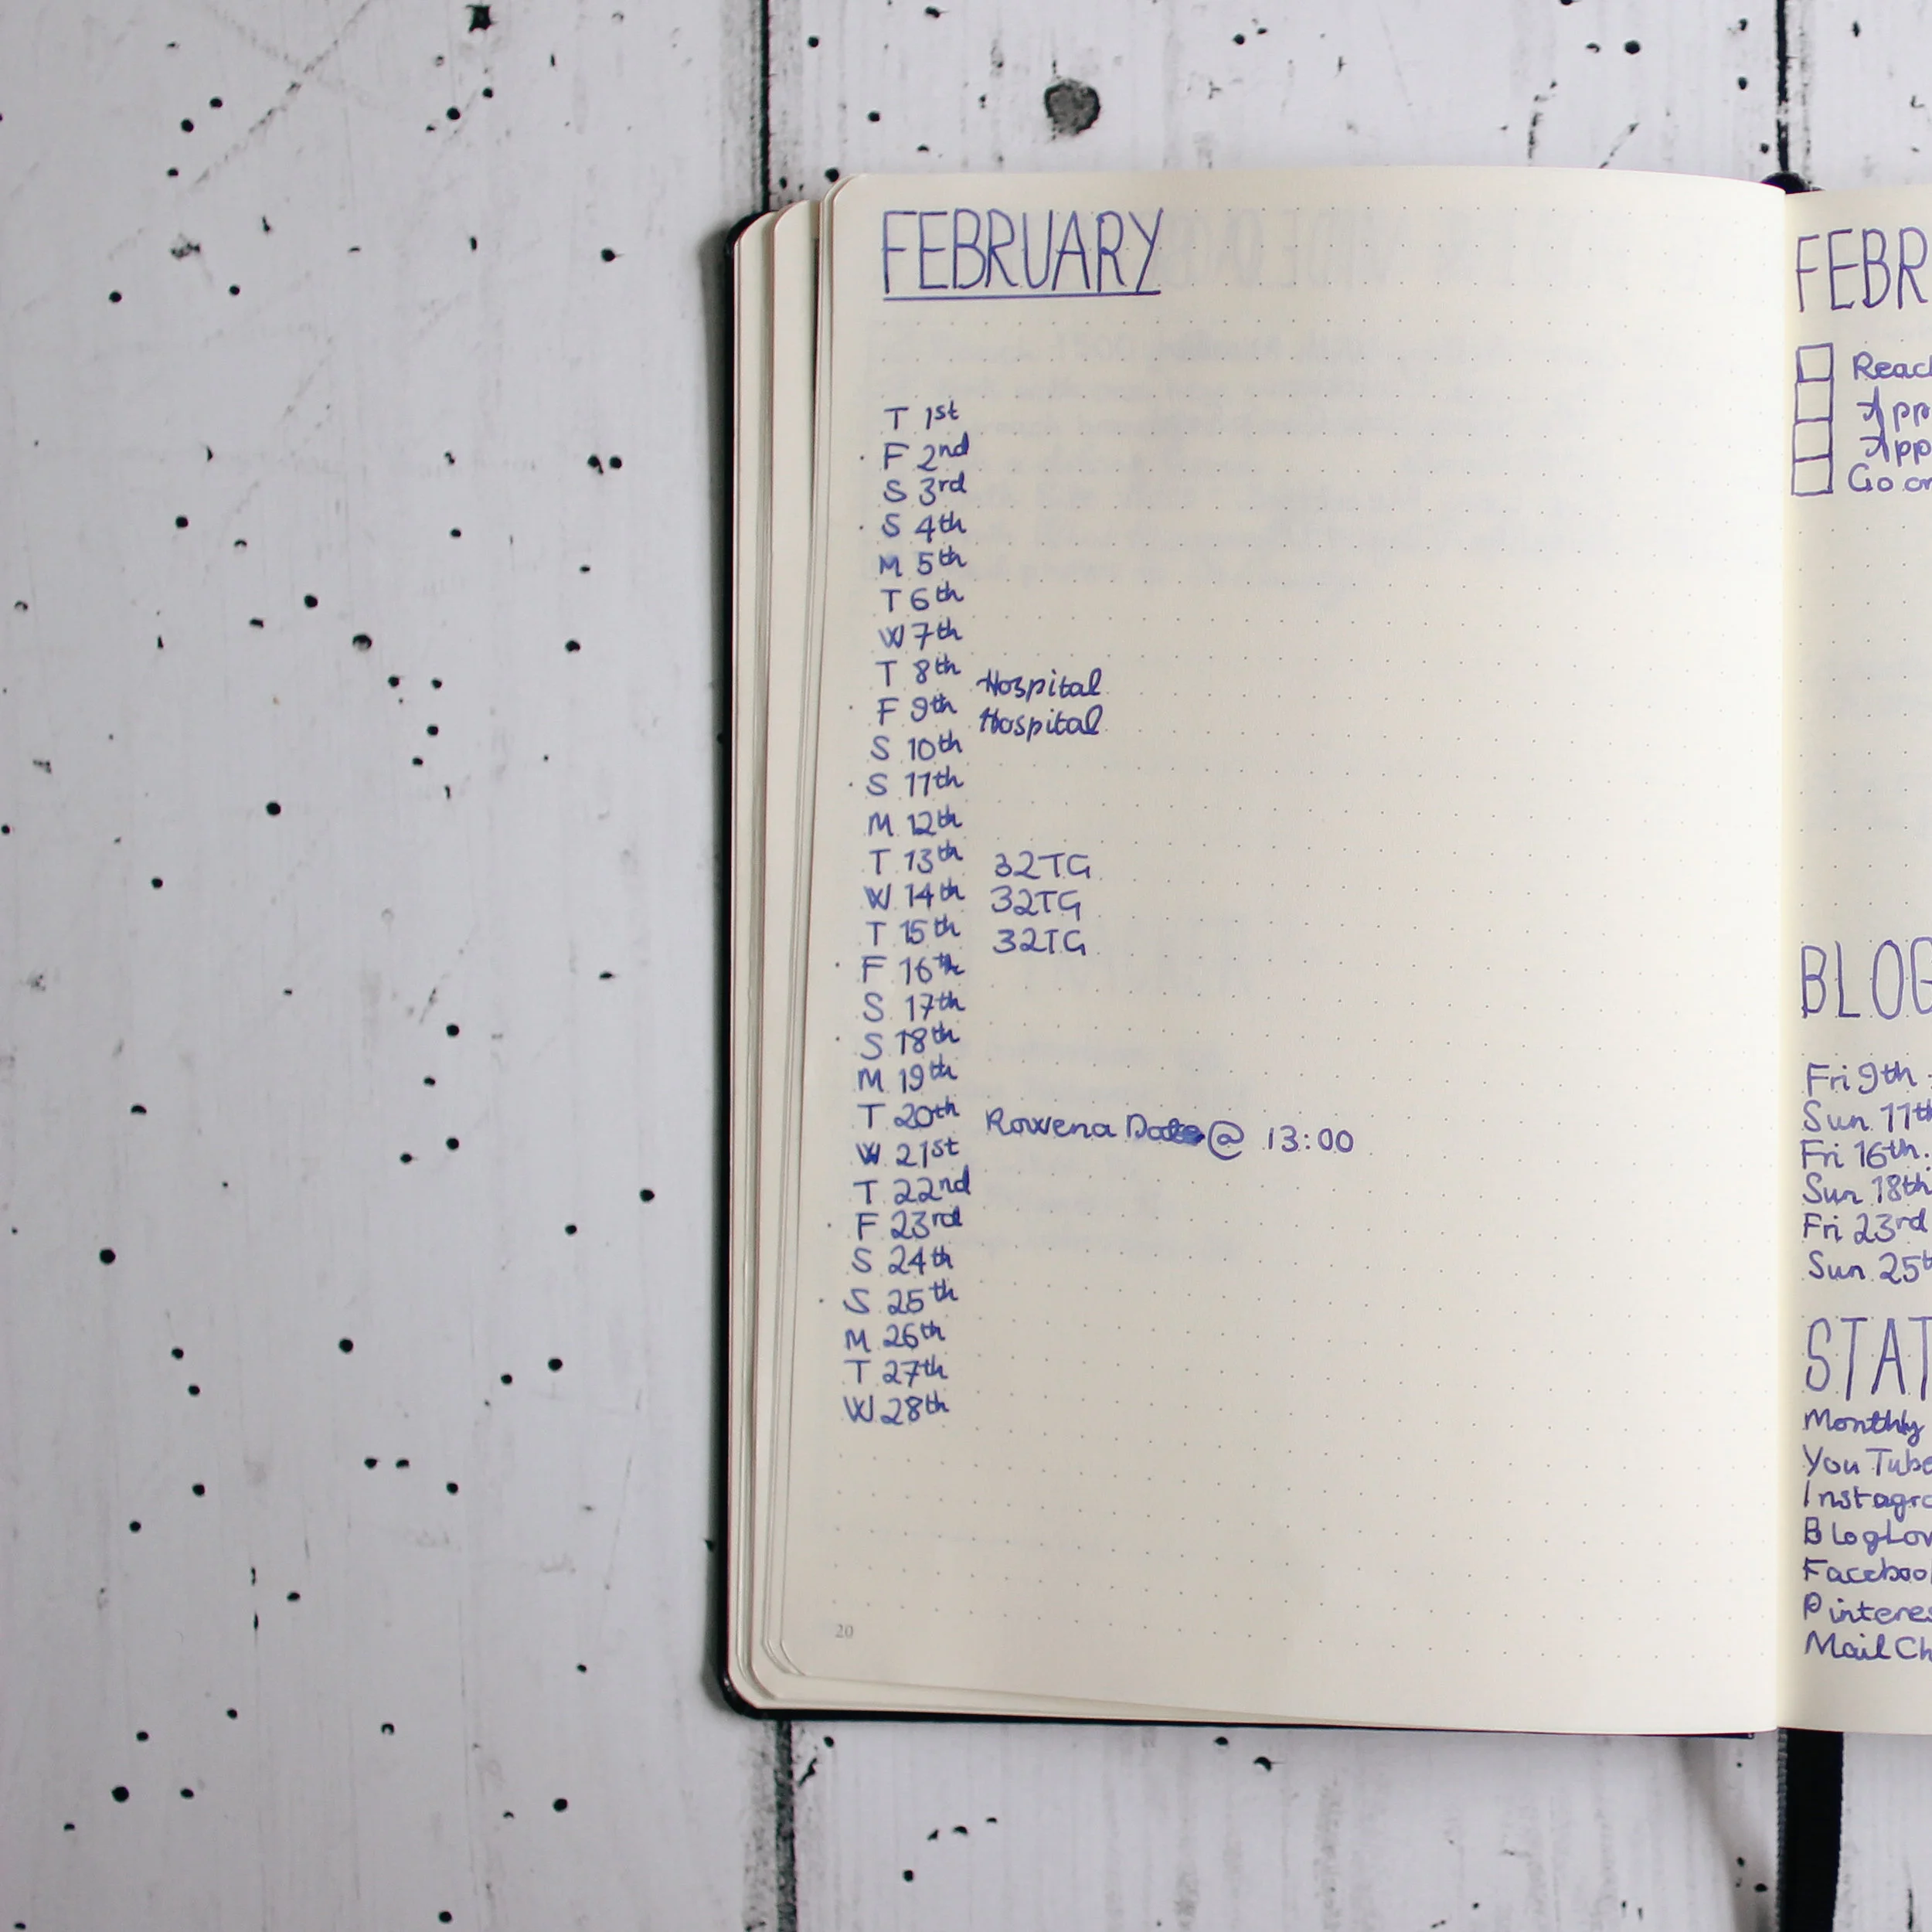 FEBRUARY
T 1st
F 2nd
S 3rd
S 4th
M 5th
T 6th
W 7th
T 8th Hospital
F 9th Hospital
S 10th
S 11th
M 12th
T 13th 32TG
W 14th 32TG
T 15th 32TG
F 16th
S 17th
S 18th
M 19th
T 20th Rowena @ 13:00
W 21st
T 22nd
F 23rd
S 24th
S 25th
M 26th
T 27th
W 28th
20
FEBR
Reac
App
App
Go on
BLOG
Fri 9th
Sun 11th
Fri 16th
Sun 18th
Fri 23rd
Sun 25t
STAT
Monthly
YouTube
Instagra
BlogLov
Faceboo
Pinteres
MailCh